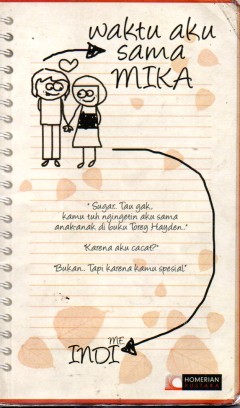 waktu aku
sama
MIKA
"Sugar.. Tau gak,
kamu tuh ngingetin aku sama
anak-anak di buku Torey Hayden.."
"Karena aku cacat?"
"Bukan.. Tapi karena kamu spesial"
ME
INDI
HOMERIAN
PUSTAKA